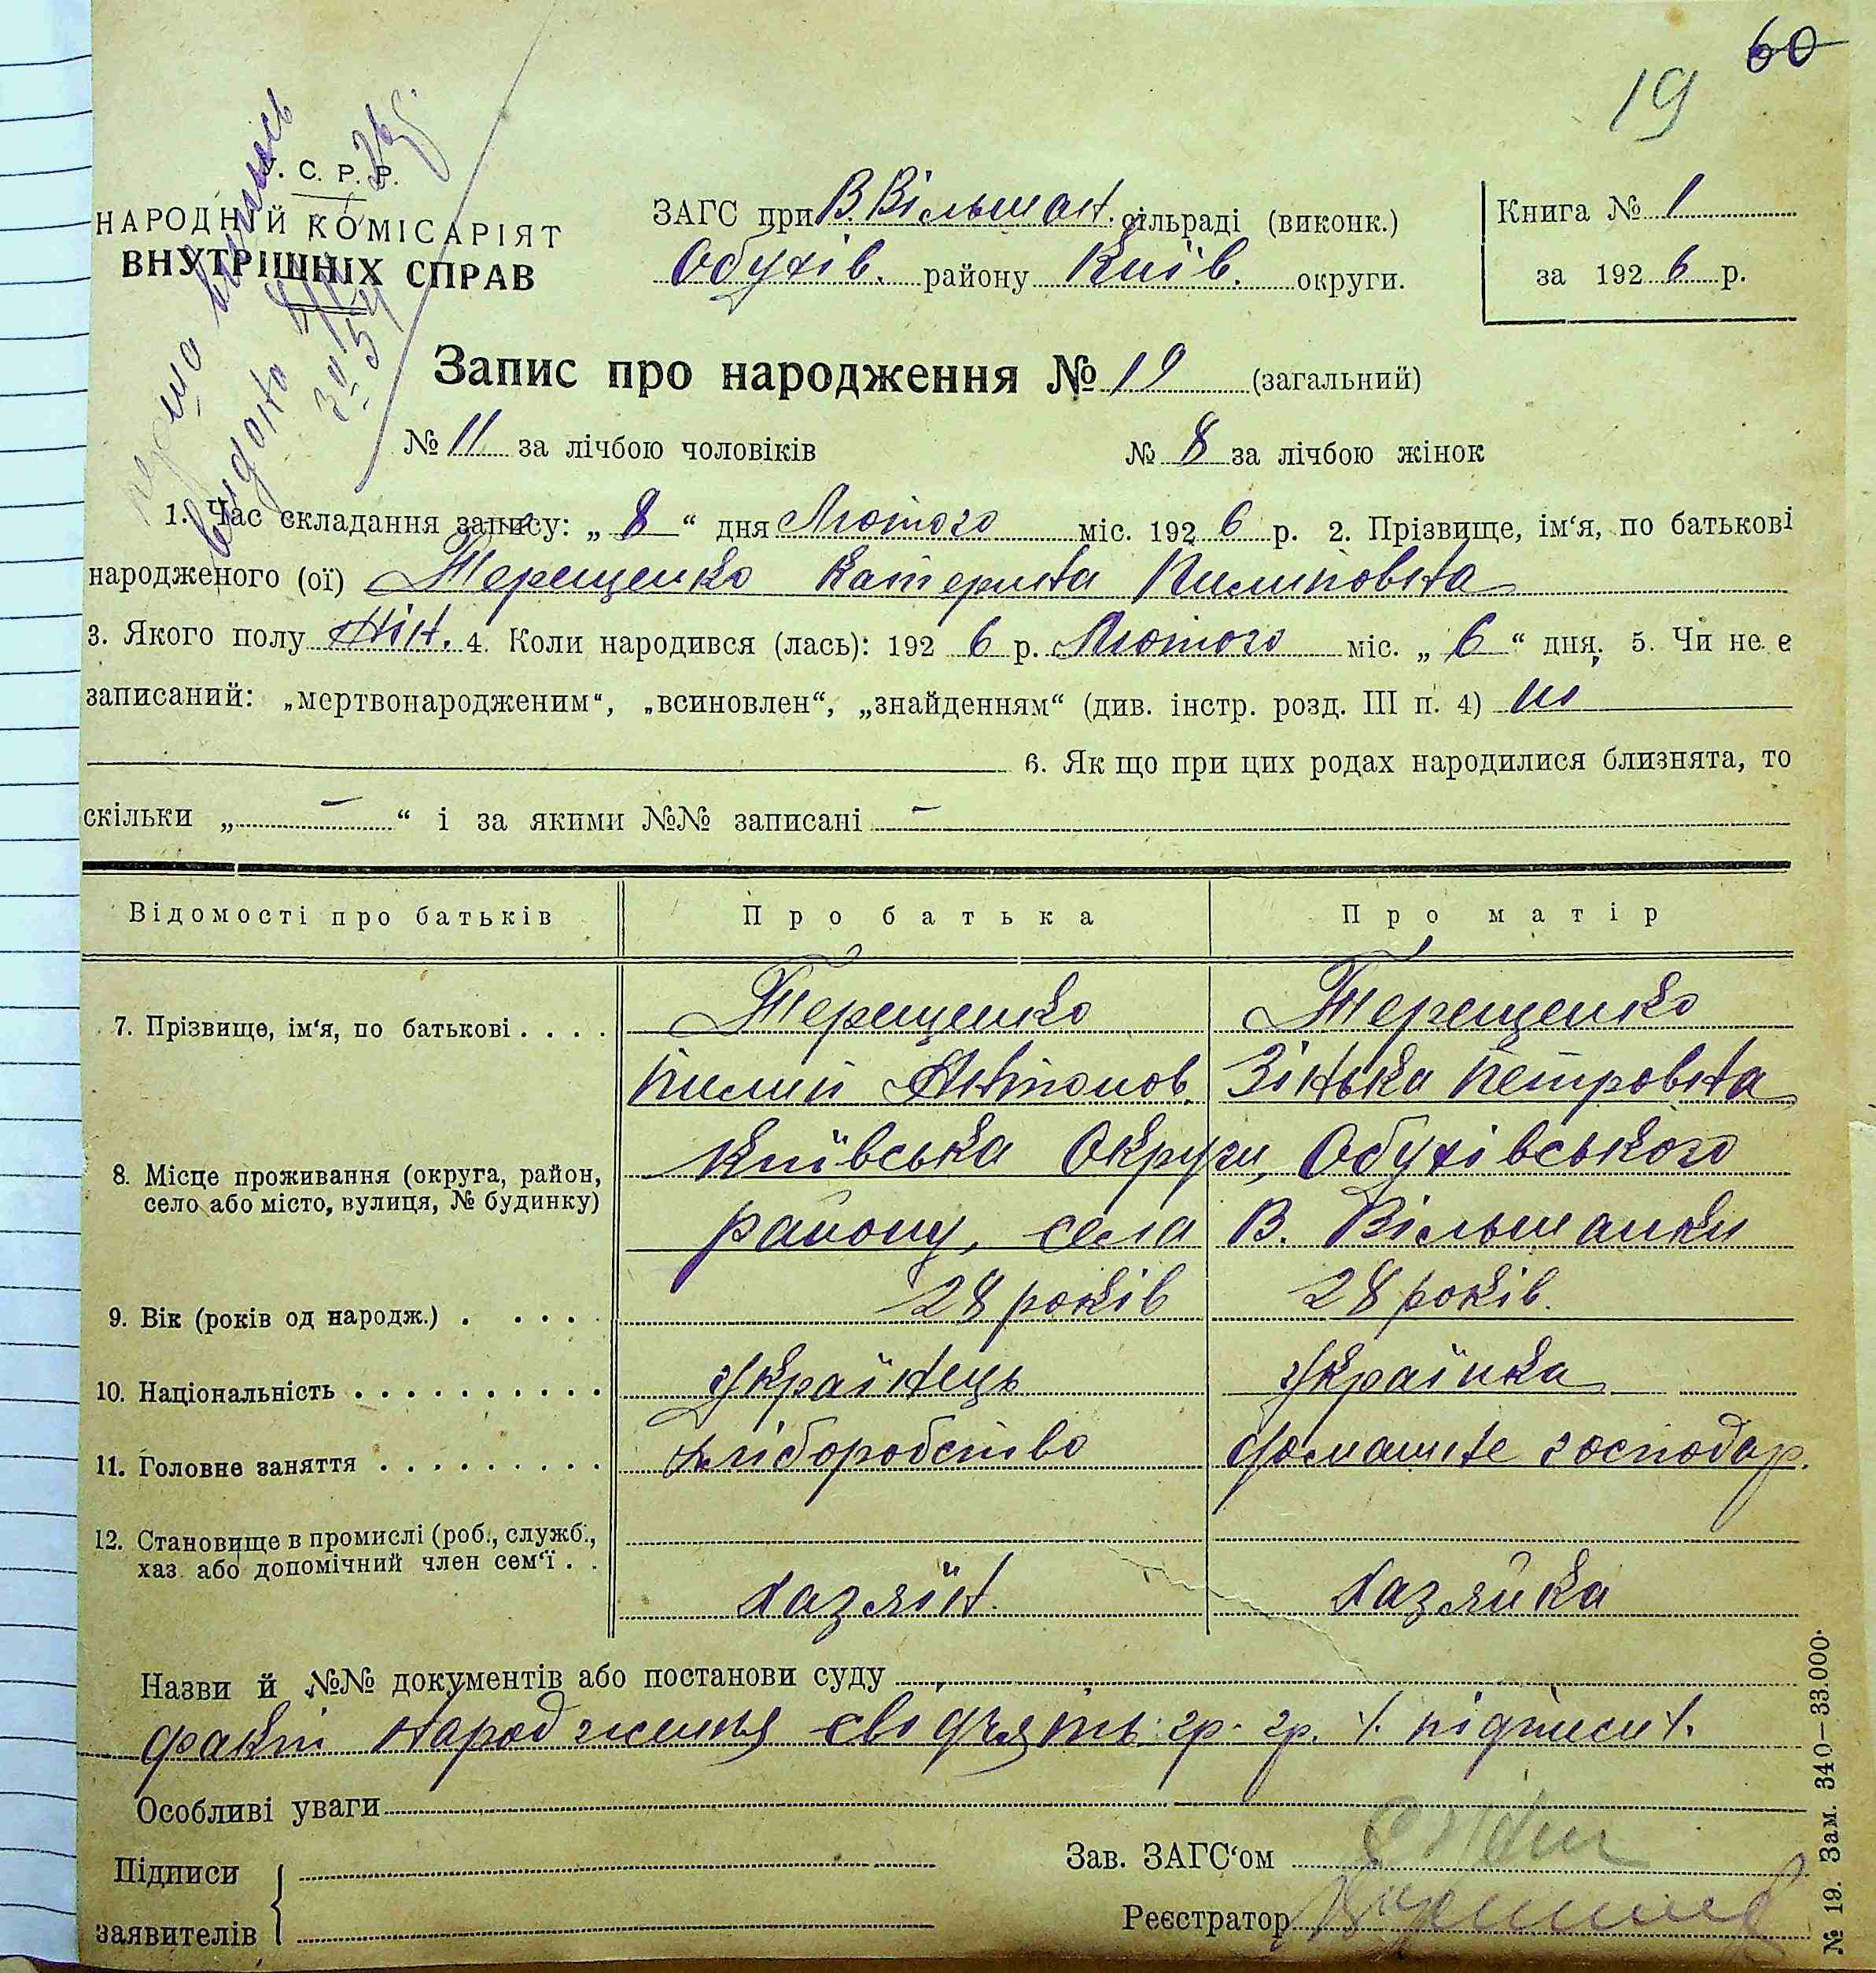 60
19
С. Р. Р.
НАРОДНІЙ КОМІСАРІЯТ
ВНУТРІШНІХ СПРАВ
видана
ЗАГС при В. Вільшан. сільраді (виконк.)
Обухів. району Київ. округи.
Книга № 1
за 1926 р.
Запис про народження № 19 (загальний)
№ 11 за лічбою чоловіків № 8 за лічбою жінок
1. Час складання запису: „ 8 “ дня Лютого міс. 1926 р. 2. Прізвище, ім‘я, по батькові
народженого (ої) Терещенко Катерина Пилиповна
3. Якого полу жін. 4. Коли народився (лась): 192 6 р. Лютого міс. „ 6 “ дня; 5. Чи не є
записаний: „мертвонародженим“, „всиновлен“, „знайденням“ (див. інстр. розд. III п. 4) ні
6. Як що при цих родах народилися близнята, то
скільки „ — “ і за якими №№ записані —
Відомості про батьків Про батька Про матір
7. Прізвище, ім‘я, по батькові . . . . Терещенко Терещенко
Пилип Антонов. Зінька Петровна
8. Місце проживання (округа, район, Київська Округи, Обухівського
село або місто, вулиця, № будинку) району, села В. Вільшанки
9. Вік (років од народж.) . . . . 28 років 28 років.
10. Національність . . . . . . . . . . Українець Українка
11. Головне заняття . . . . . . . . . хліборобство домашнє господар.
12. Становище в промислі (роб., служб.,
хаз. або допомічний член сем‘ї . . хазяїн. хазяйка
Назви й №№ документів або постанови суду
факт народження свідчять: гр. гр. /. підписи /.
Особливі уваги
Підписи
заявителів
Зав. ЗАГС‘ом
Реєстратор
№ 19. Зам. 340—33.000.